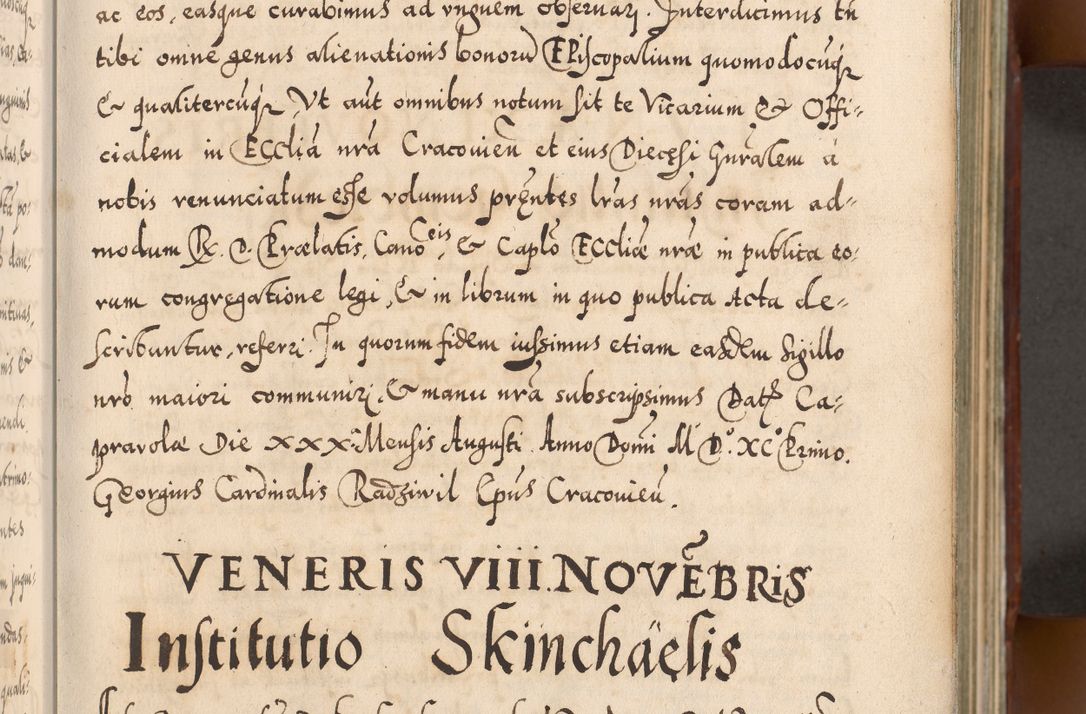 ac eos, easque curabimus ad unguem observari. Interdicimus tñ
tibi omne genus alienationis bonorũ EPiscopalium quomodocuq̃
& qualitercuq̃, Vt aũt omnibus notum sit te Vicarium & Offi-
cialem in ECcliã nrã Cracovieñ et eius Diecęsi Gnrãlem â
nobis renunciatum esse volumus pręntes lrãs nrãs coram ad-
modum R. D. Prælatis, Canoceis, & Caplõ ECcliæ nræ in publica eo-
rum congregatione legi, & in librum in quo publica Acta de-
scribuntur, referri. In quorum fidem iussimus etiam easdem Sigillo
nrõ maiori communiri, & manu nrã subscripsimus Dat Ca-
pravolæ Die XXX. Mensis Augusti Anno Domi M. D. XC Primo.
Georgius Cardinalis Radziwil Epũs Cracovieñ.
VENERIS VIII. NOVẼBRIS
Institutio Skinchäelis